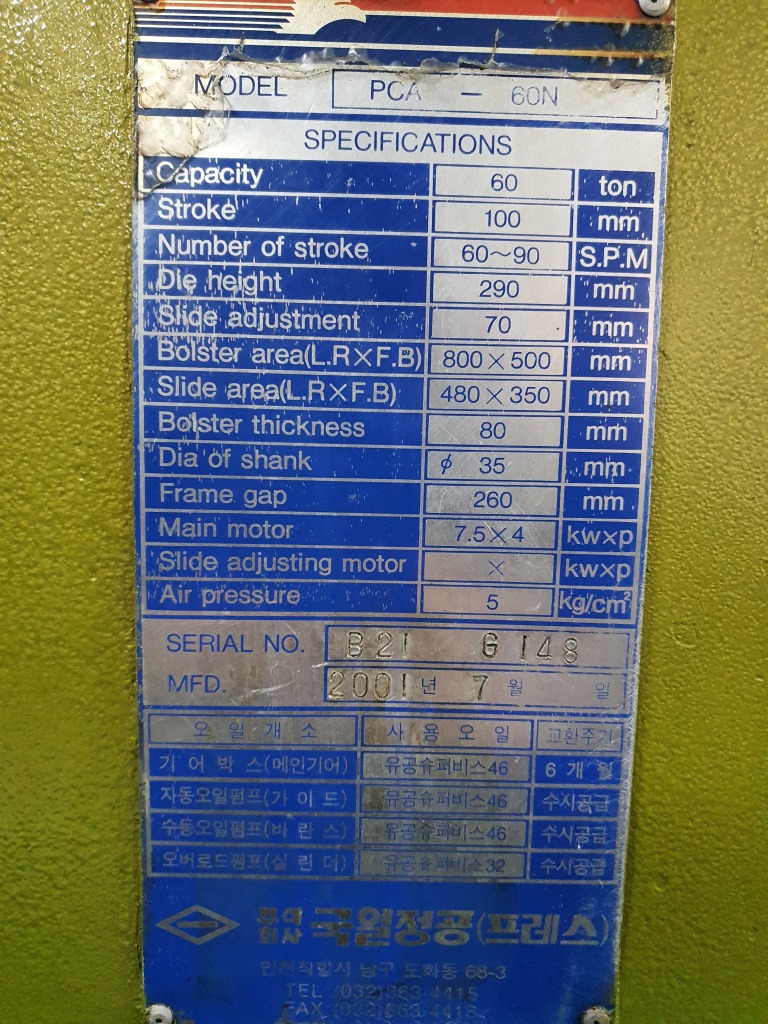 MODEL PCA - 60N
SPECIFICATIONS
Capacity 60 ton
Stroke 100 mm
Number of stroke 60~90 S.P.M
Die height 290 mm
Slide adjustment 70 mm
Bolster area(L.R×F.B) 800×500 mm
Slide area(L.R×F.B) 480×350 mm
Bolster thickness 80 mm
Dia of shank φ 35 mm
Frame gap 260 mm
Main motor 7.5×4 kw×p
Slide adjusting motor × kw×p
Air pressure 5 kg/cm²
SERIAL NO. B21 G148
MFD. 2001년 7월 일
오일개소 사용오일 교환주기
기어박스(메인기어) 유공슈퍼비스46 6개월
자동오일펌프(가이드) 유공슈퍼비스46 수시공급
수동오일펌프(바란스) 유공슈퍼비스46 수시공급
오버로드펌프(실린더) 유공슈퍼비스32 수시공급
주식회사 국원정공(프레스)
인천직할시 남구 도화동 68-3
TEL:(032)863-4415
FAX:(032)863-4418